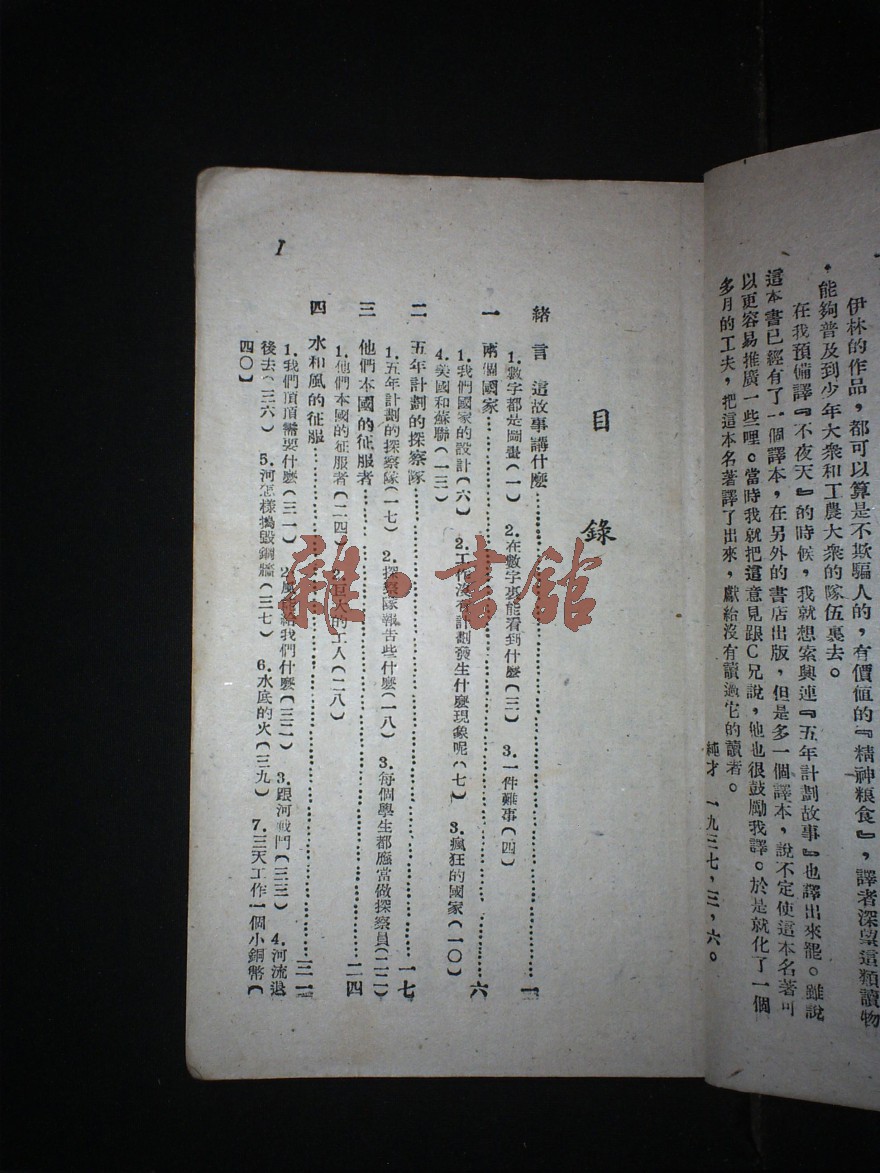 伊林的作品，都可以算是不欺騙人的，有價値的『精神粮食』，譯者深望這類讀物
能夠普及到少年大衆和工農大衆的隊伍裏去。
在我預備譯『不夜天』的時候，我就想索興連『五年計劃故事』也譯出來罷。雖說
這本書已經有了一個譯本，在另外的書店出版，但是多一個譯本，說不定使這本名著可
以更容易推廣一些哩。當時我就把這意見跟C兄說，他也很鼓勵我譯。於是就化了一個
多月的工夫，把這本名著譯了出來，獻給沒有讀過它的讀者。
純才 一九三七，三，六。
目錄
緒言 這故事講什麼……一
1.數字都是圖畫(一) 2.在數字裏能看到什麼(三) 3.一件難事(四)
一 兩個國家……六
1.我們國家的設計(六) 2.工作沒有計劃發生什麼現象呢(七) 3.瘋狂的國家(一〇)
4.美國和蘇聯(一三)
二 五年計劃的探察隊……一七
1.五年計劃的探察隊(一七) 2.探察隊報告些什麼(一八) 3.每個學生都應當做探察員(二二)
三 他們本國的征服者……二四
1.他們本國的征服者(二四) 2.巨大的工人(二八)
四 水和風的征服……三一
1.我們頂頂需要什麼(三一) 2.風能給我們什麼(三二) 3.跟河戰鬥(三三) 4.河流退
後去(三六) 5.河怎樣搗毀鋼牆(三七) 6.水底的火(三九) 7.三天工作一個小銅幣(
四〇)
I
雜·書館